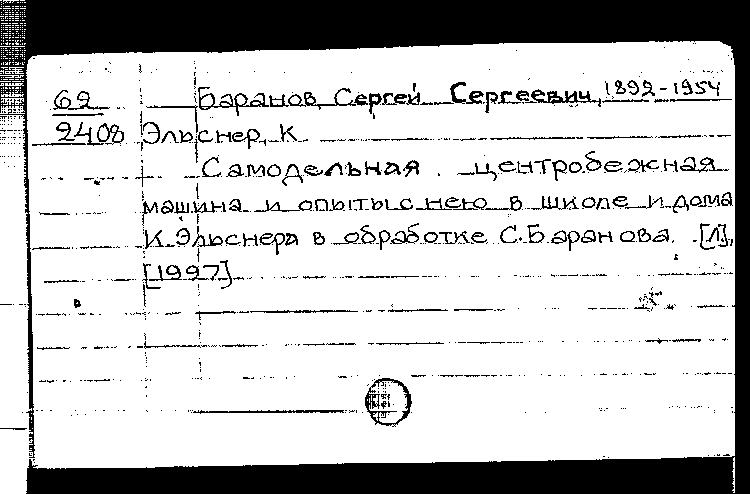 62 Баранов, Сергей Сергеевич, 1892-1954
2408 Эльснер, К
Самодельная центробежная
машина и опыты с нею в школе и дома
К. Эльснера в обработке С. Баранова. [Л],
[1997]